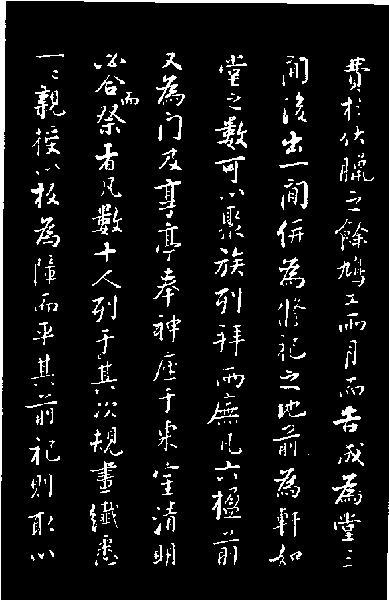 費於伏臘之餘鳩工兩月而告成為堂三
間後出一間併為修祀之地前為軒如
堂之數可以聚族列拜兩廡凡六楹前
又為门及享亭奉神庭于室清明
必合而祭者凡數十人列于其次規畫纖悉
一〻親授以板為障而平其前祀則取以